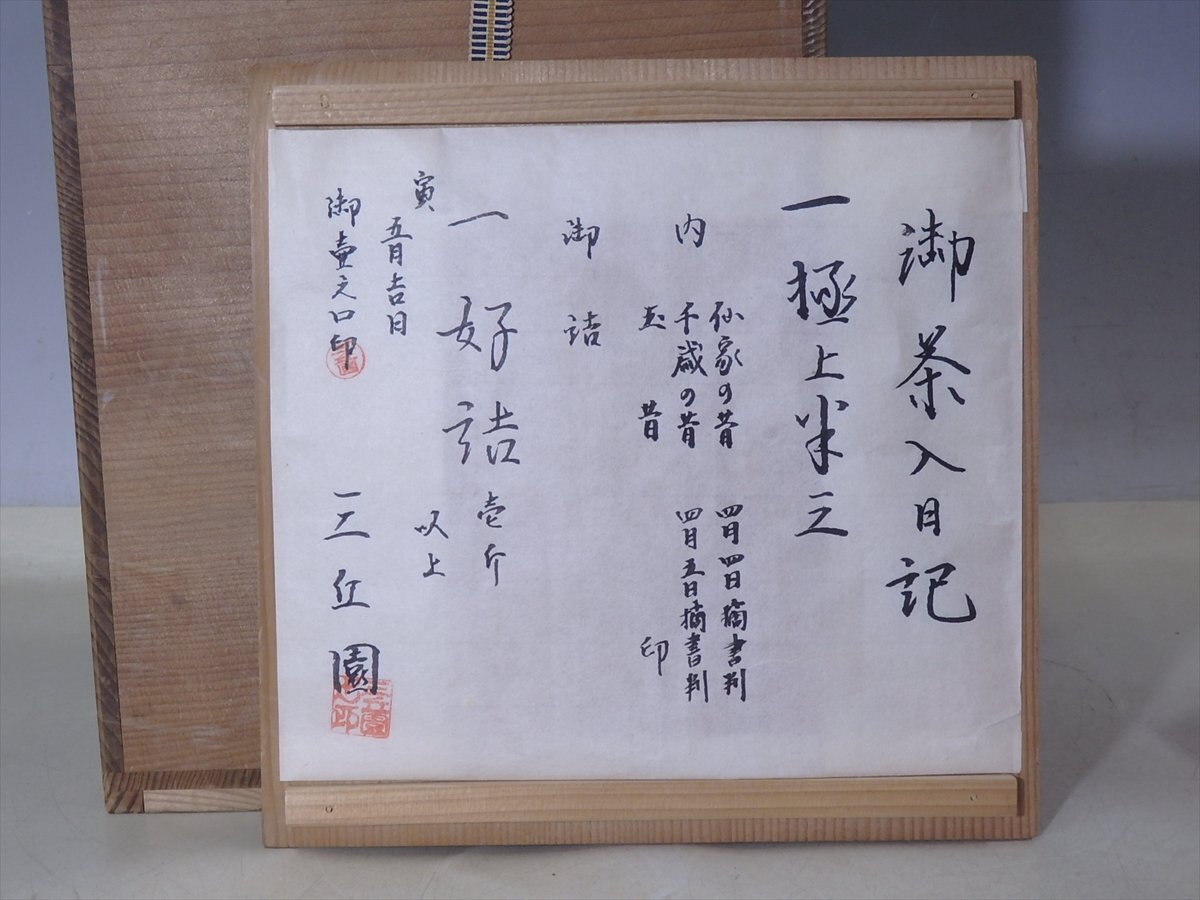 御茶入日記
一 極上半三
内
仙家の昔 四月四日摘書判
千歳の昔 四月五日摘書判
昔 印
御詰
一 好詰 壱斤
以上
寅 五月吉日
御壷之口印 三丘園